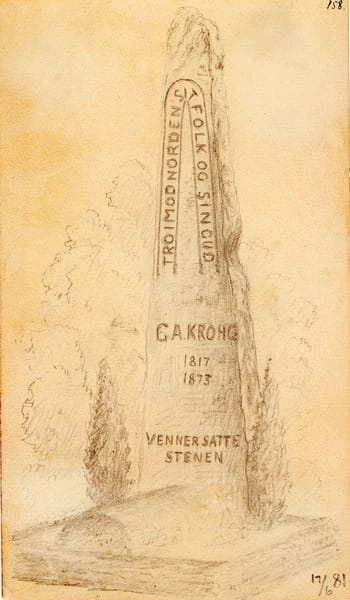 158.
TRO IMOD NORDEN SIT FOLK OG SIN GUD
G.A.KROHG
1817
1873
VENNER SATTE
STENEN
17/6 81